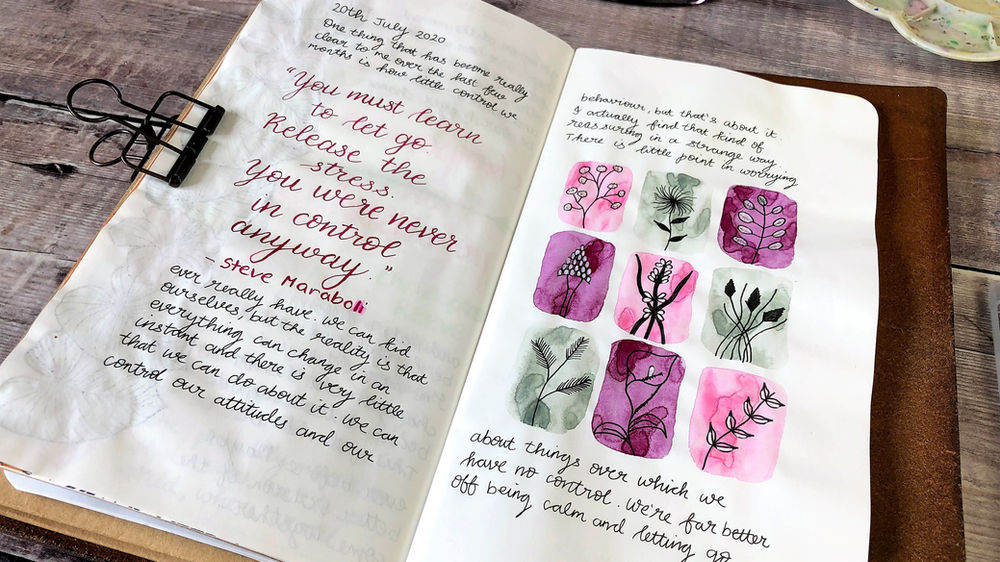 20th July 2020
One thing that has become really
clear to me over the last few
months is how little control we
"You must learn
to let go.
Release the
stress.
You were never
in control
anyway."
- Steve Maraboli
ever really have. We can kid
ourselves, but the reality is that
everything can change in an
instant and there is very little
that we can do about it. We can
control our attitudes and our
behaviour, but that's about it.
I actually find that kind of
reassuring in a strange way.
There is little point in worrying
about things over which we
have no control. We're far better
off being calm and letting go